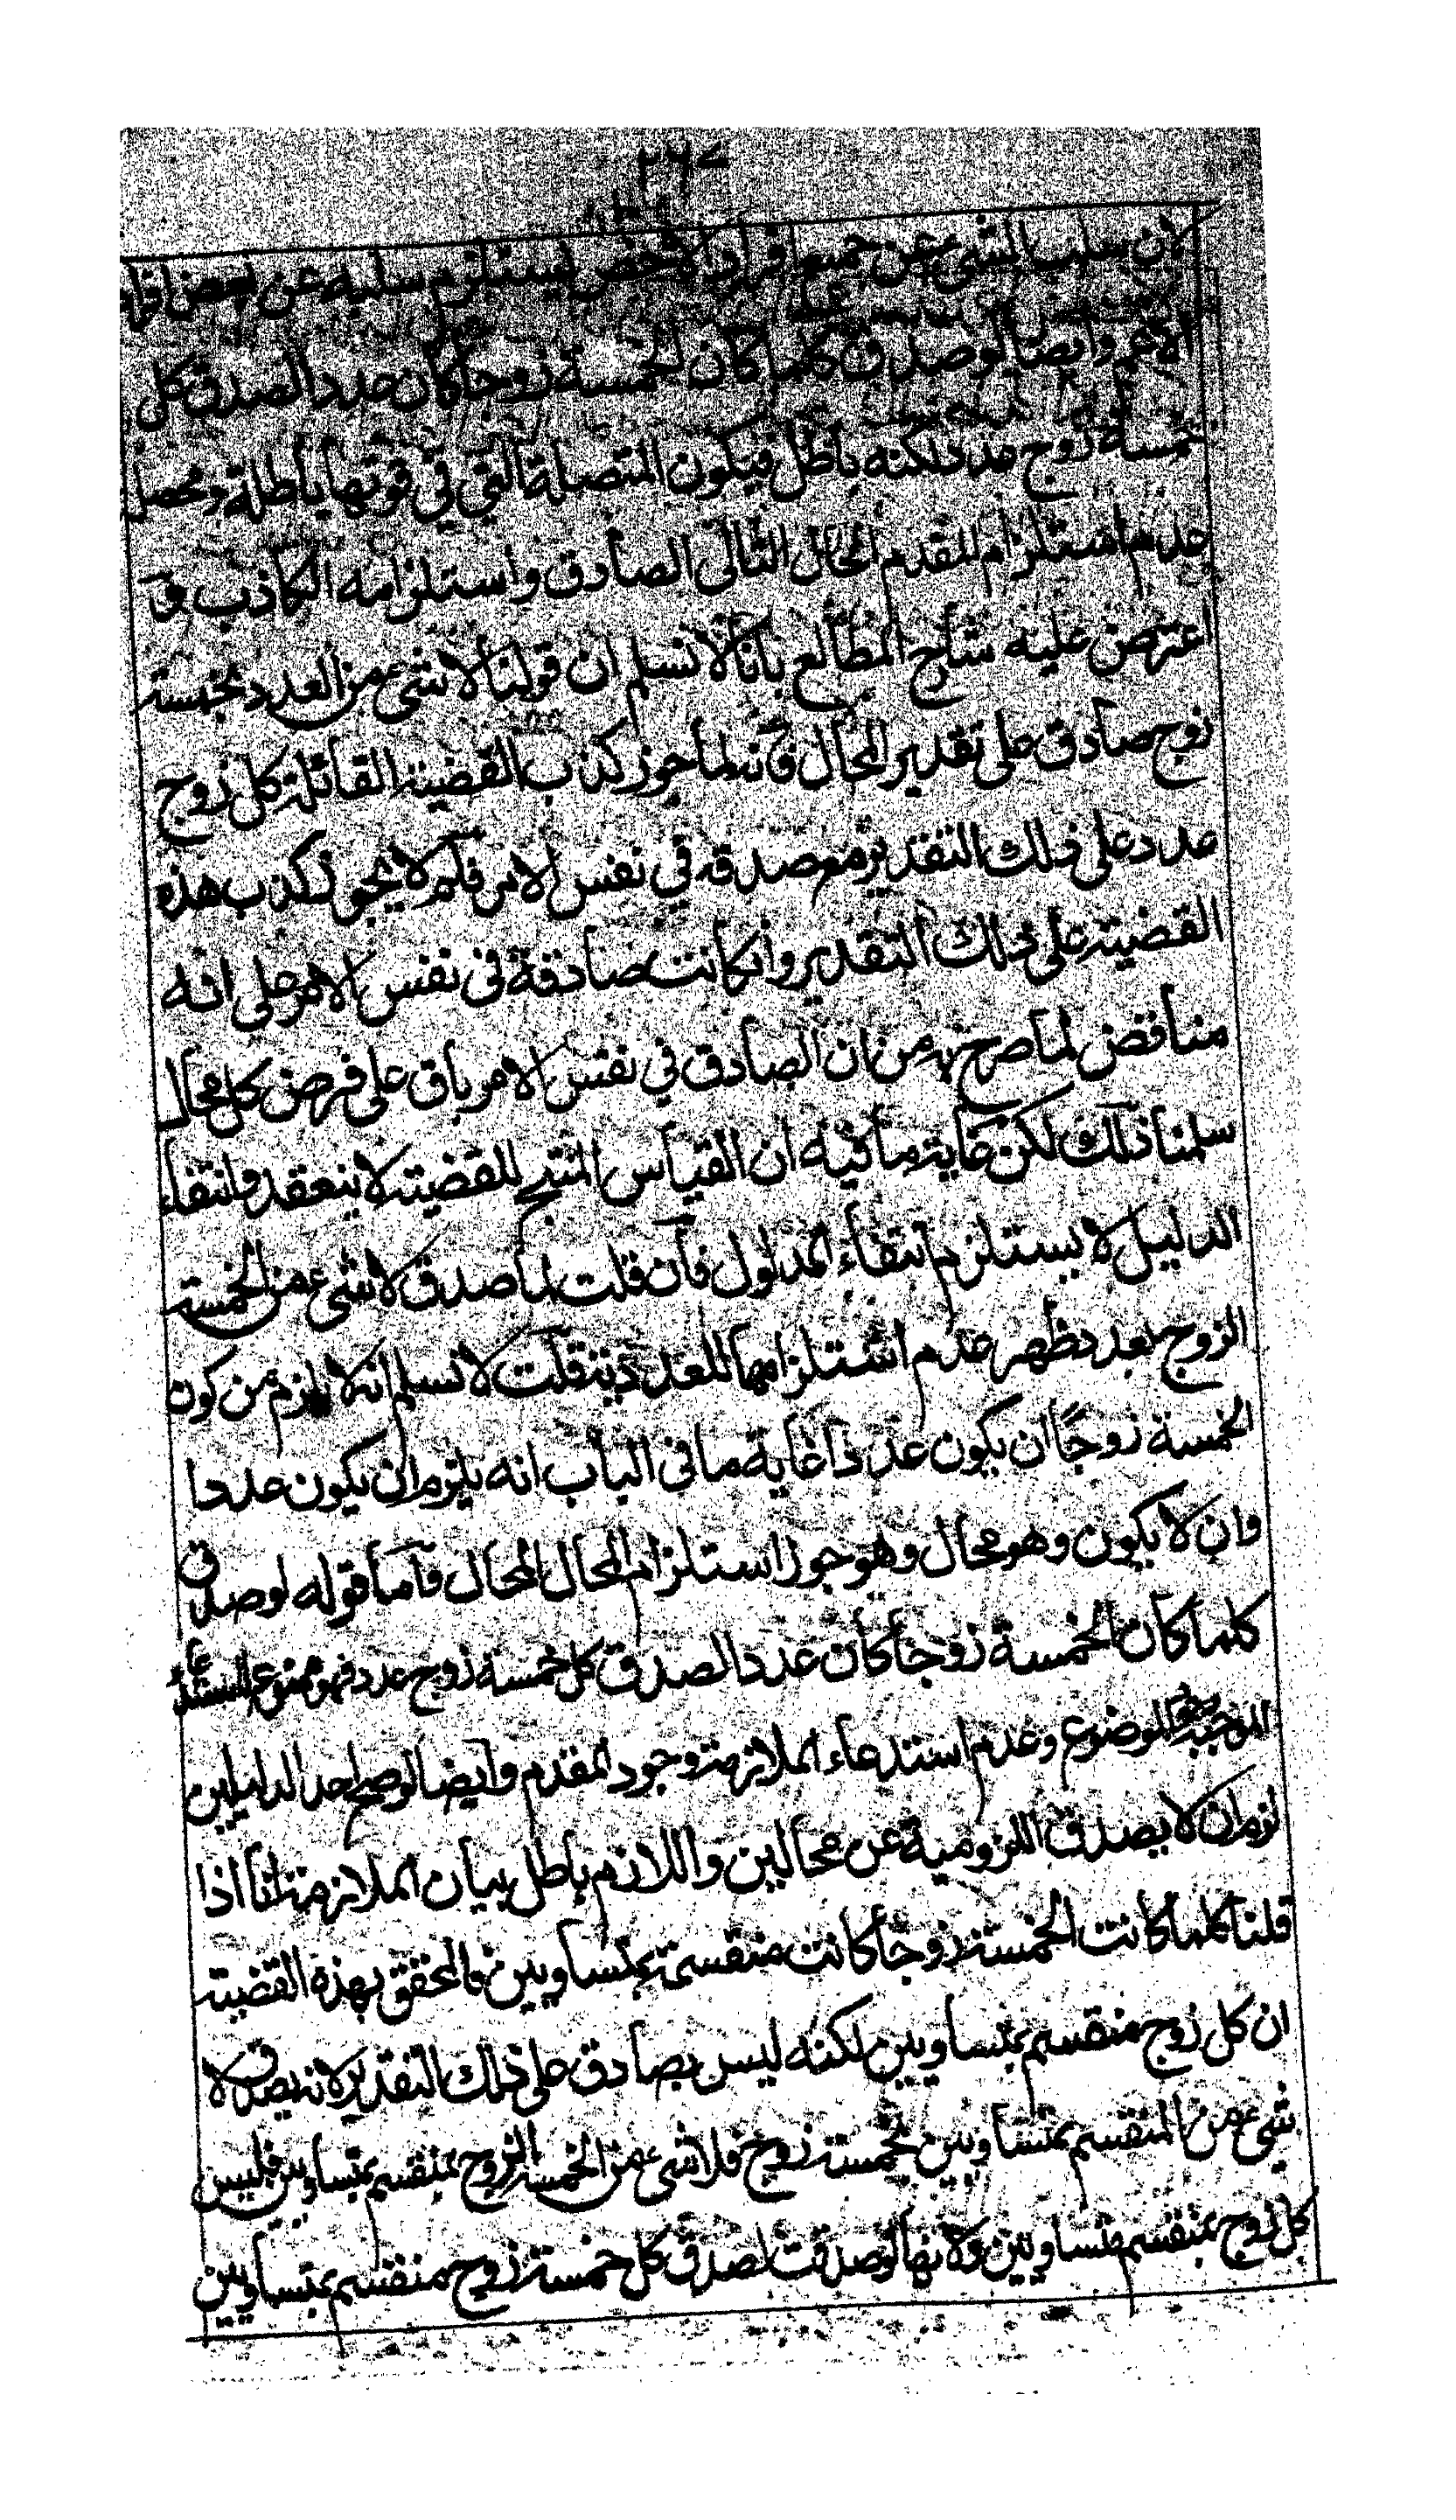 ٢٦٧
لان سلب الشئ عن جميع افراد الاخص يستلزم سلبه عن بعض افراد
الاعم وايضا لو صدق كلما كان الخمسة زوجا كان عددا لصدق كل
خمسة زوج عدد لكنه باطل فيكون المتصلة التي في قوتها باطلة ومحصل
عدم استلزام المقدم المحال التالى الصادق واستلزامه الكاذب و
اعترض عليه شارح المطالع بانا لا نسلم ان قولنا لا شئ من العدد بخمسة
زوج صادق على تقدير المحال فانه لما جوز كذب القضية القائلة كل زوج
عدد على ذلك التقدير مع صدقه في نفس الامر فلم لا يجوز كذب هذه
القضية على ذلك التقدير وان كانت صادقة في نفس الامر على انه
مناقض لما صرح به من ان الصادق في نفس الامر باق على فرض كل محال
سلمنا ذلك لكن غاية ما فيه ان القياس المنتج للقضية لا ينعقد وانتفاء
الدليل لا يستلزم انتفاء المدلول فان قلت لما صدق لا شئ من الخمسة
الزوج بعدد ظهر عدم استلزامها للعددية قلت لا نسلم انه لا يلزم من كون
الخمسة زوجًا ان يكون عددا غاية ما في الباب انه يلزم ان يكون عددا
وان لا يكون وهو محال وهو جوز استلزام المحال المحال فاما قوله لو صدق
كلما كان الخمسة زوجا كان عددا لصدق كل خمسة زوج عدد فهو ممنوع لاستدعاء
الموجبة الموضوع وعدم استدعاء الملازمة وجود المقدم وايضا لو صح احد الدليلين
لزم ان لا يصدق اللزومية عن محالين واللازم باطل بيان الملازمة انا اذا
قلنا كلما كانت الخمسة زوجا كانت منقسمة بمتساويين فالمحقق بهذه القضية
ان كل زوج منقسم بمتساويين لكنه ليس بصادق على ذلك التقدير لانه يصدق لا
شئ من المنقسم بمتساويين بخمسة زوج فلا شئ من الخمسة الزوج بمنقسم بمتساويين فليس
كل زوج بمنقسم بمتساويين ولانها لو صدقت لصدق كل خمسة زوج منقسم بمتساويين